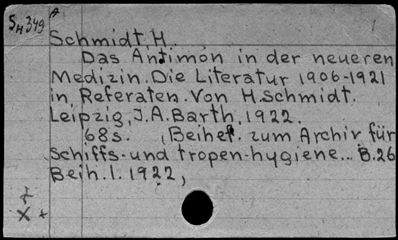 SH349
Schmidt, H.
Das Antimon in der neueren
Medizin. Die Literatur 1906-1921
in Referaten. Von H. Schmidt.
Leipzig, J. A. Barth, 1922.
68s. (Beiheft. zum Archiv für
Schiffs- und tropen-hygiene... B. 26
Beih. 1. 1922,